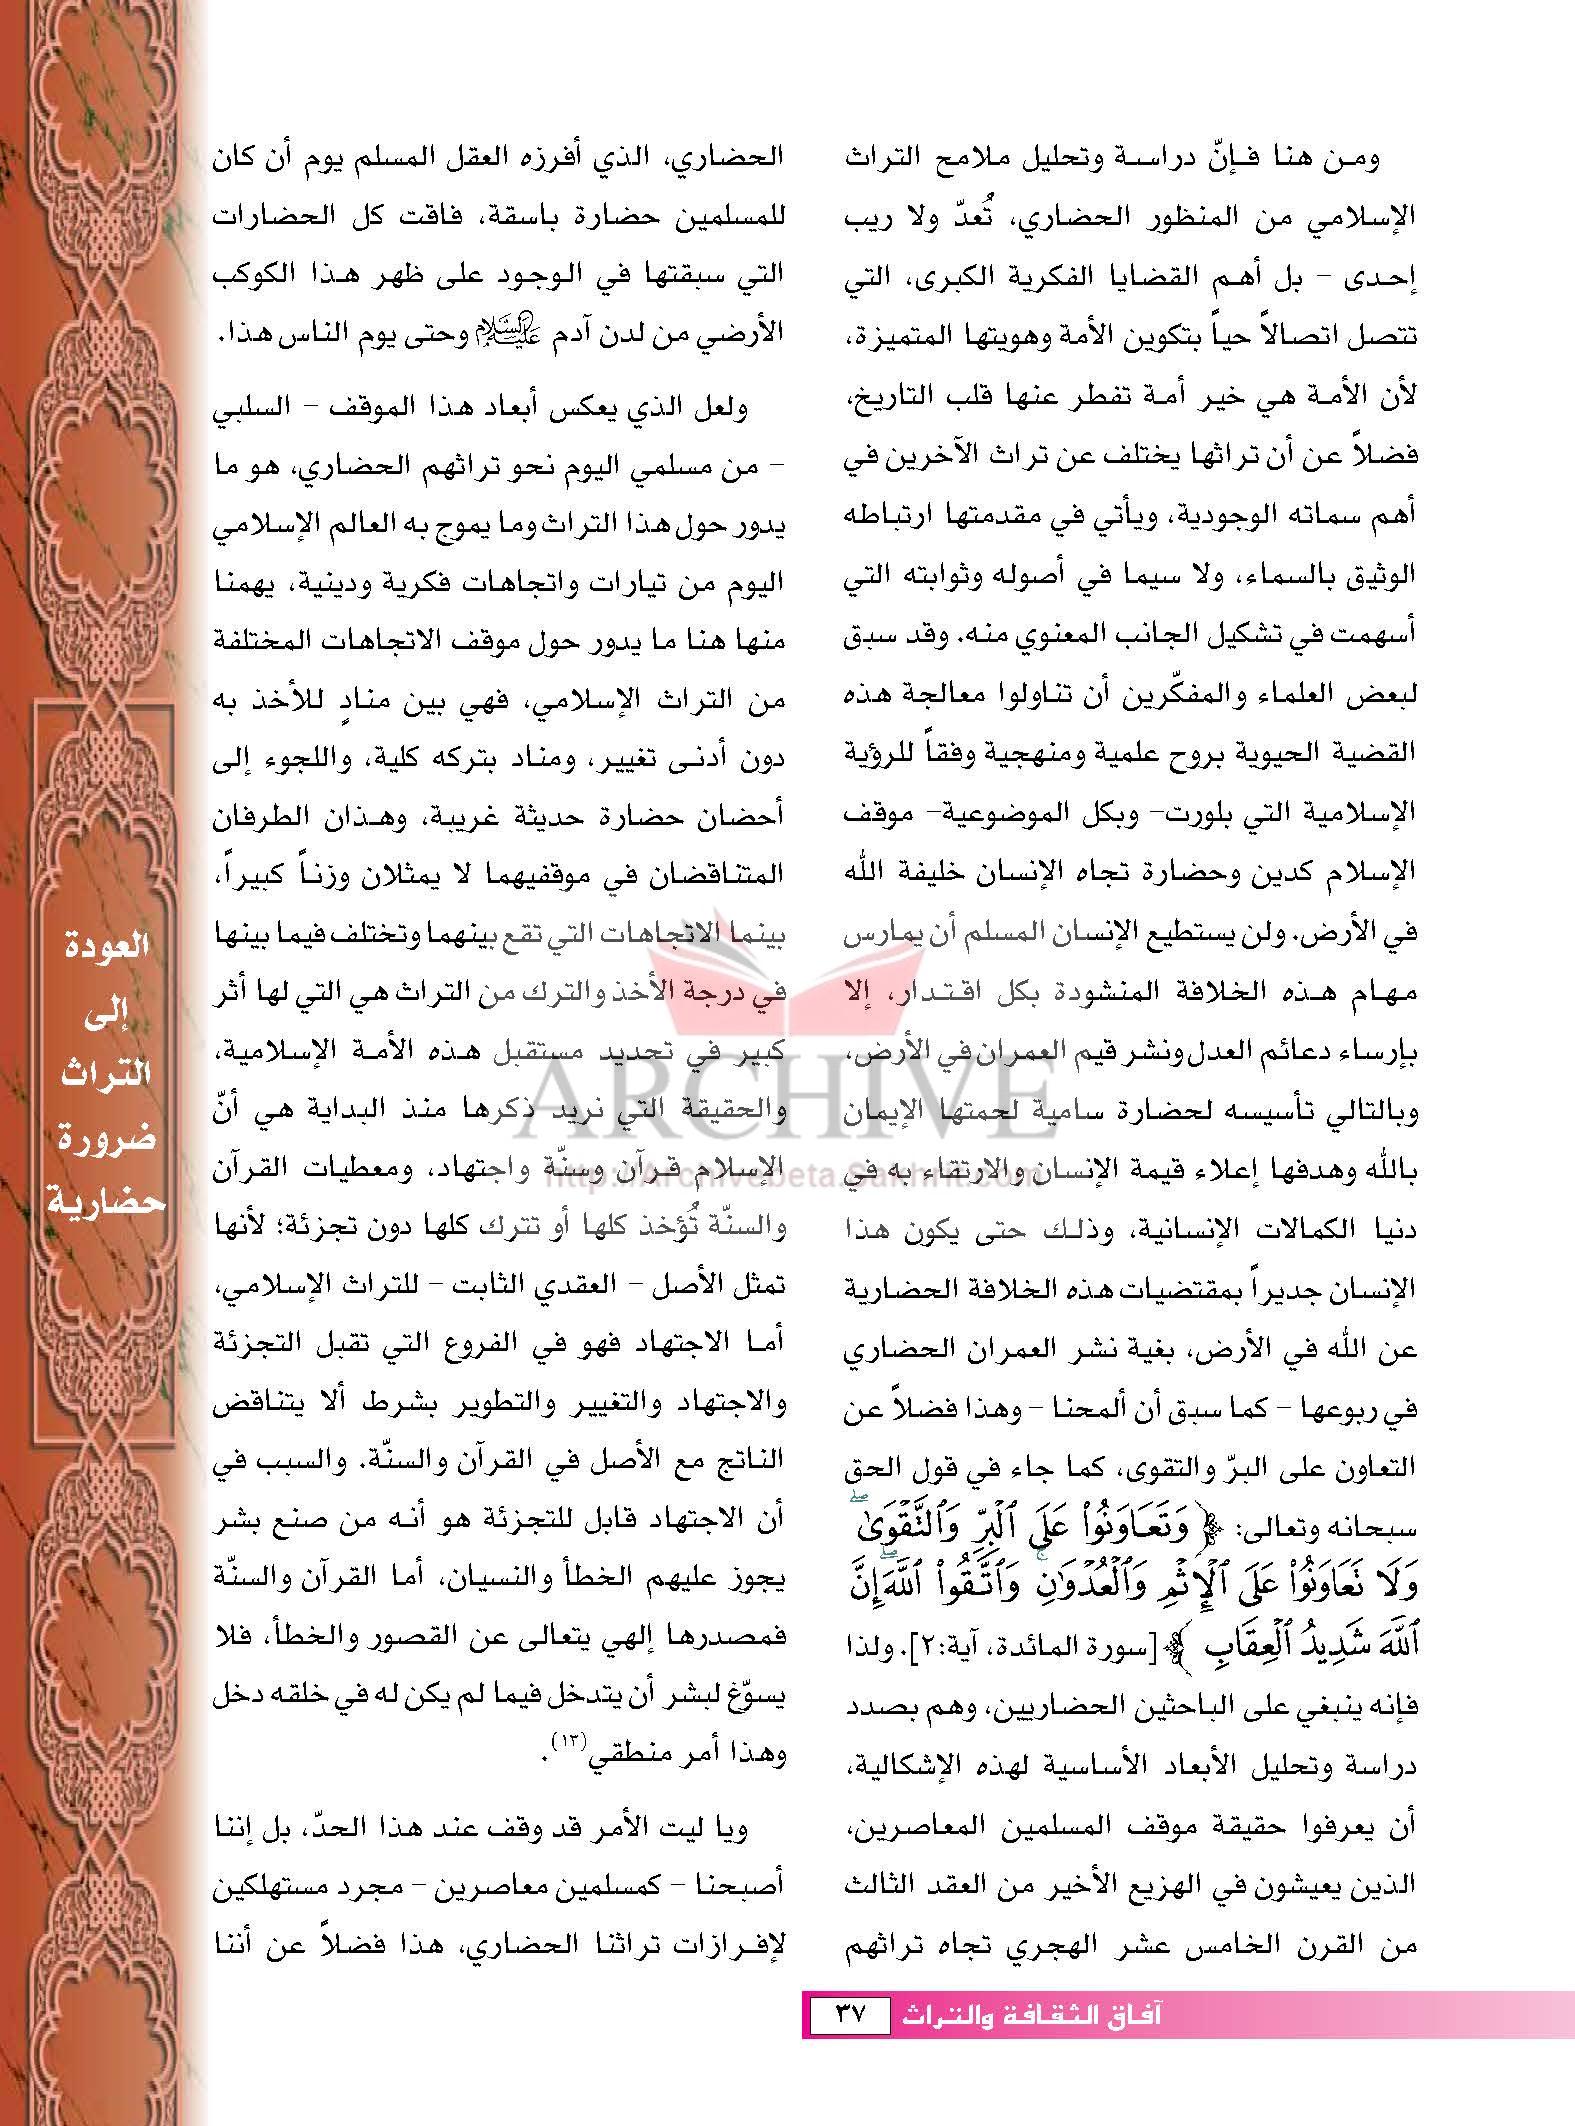 ومن هنا فإنّ دراسة وتحليل ملامح التراث
الإسلامي من المنظور الحضاري، تُعدّ ولا ريب
إحدى – بل أهم القضايا الفكرية الكبرى، التي
تتصل اتصالاً حياً بتكوين الأمة وهويتها المتميزة،
لأن الأمة هي خير أمة تفطر عنها قلب التاريخ،
فضلاً عن أن تراثها يختلف عن تراث الآخرين في
أهم سماته الوجودية، ويأتي في مقدمتها ارتباطه
الوثيق بالسماء، ولا سيما في أصوله وثوابته التي
أسهمت في تشكيل الجانب المعنوي منه. وقد سبق
لبعض العلماء والمفكّرين أن تناولوا معالجة هذه
القضية الحيوية بروح علمية ومنهجية وفقاً للرؤية
الإسلامية التي بلورت– وبكل الموضوعية– موقف
الإسلام كدين وحضارة تجاه الإنسان خليفة الله
في الأرض. ولن يستطيع الإنسان المسلم أن يمارس
مهام هذه الخلافة المنشودة بكل اقتدار، إلا
بإرساء دعائم العدل ونشر قيم العمران في الأرض،
وبالتالي تأسيسه لحضارة سامية لحمتها الإيمان
بالله وهدفها إعلاء قيمة الإنسان والارتقاء به في
دنيا الكمالات الإنسانية، وذلك حتى يكون هذا
الإنسان جديراً بمقتضيات هذه الخلافة الحضارية
عن الله في الأرض، بغية نشر العمران الحضاري
في ربوعها – كما سبق أن ألمحنا – وهذا فضلاً عن
التعاون على البرّ والتقوى، كما جاء في قول الحق
سبحانه وتعالى: ﴿ وَتَعَاوَنُوا۟ عَلَى ٱلْبِرِّ وَٱلتَّقْوَىٰ ۖ
وَلَا تَعَاوَنُوا۟ عَلَى ٱلْإِثْمِ وَٱلْعُدْوَٰنِ ۚ وَٱتَّقُوا۟ ٱللَّهَ ۖ إِنَّ
ٱللَّهَ شَدِيدُ ٱلْعِقَابِ ﴾ [سورة المائدة، آية:٢]. ولذا
فإنه ينبغي على الباحثين الحضاريين، وهم بصدد
دراسة وتحليل الأبعاد الأساسية لهذه الإشكالية،
أن يعرفوا حقيقة موقف المسلمين المعاصرين،
الذين يعيشون في الهزيع الأخير من العقد الثالث
من القرن الخامس عشر الهجري تجاه تراثهم
الحضاري، الذي أفرزه العقل المسلم يوم أن كان
للمسلمين حضارة باسقة، فاقت كل الحضارات
التي سبقتها في الوجود على ظهر هذا الكوكب
الأرضي من لدن آدم عليه السلام وحتى يوم الناس هذا.
ولعل الذي يعكس أبعاد هذا الموقف – السلبي
– من مسلمي اليوم نحو تراثهم الحضاري، هو ما
يدور حول هذا التراث وما يموج به العالم الإسلامي
اليوم من تيارات واتجاهات فكرية ودينية، يهمنا
منها هنا ما يدور حول موقف الاتجاهات المختلفة
من التراث الإسلامي، فهي بين منادٍ للأخذ به
دون أدنى تغيير، ومناد بتركه كلية، واللجوء إلى
أحضان حضارة حديثة غريبة، وهذان الطرفان
المتناقضان في موقفيهما لا يمثلان وزناً كبيراً،
بينما الاتجاهات التي تقع بينهما وتختلف فيما بينها
في درجة الأخذ والترك من التراث هي التي لها أثر
كبير في تحديد مستقبل هذه الأمة الإسلامية،
والحقيقة التي نريد ذكرها منذ البداية هي أنّ
الإسلام قرآن وسنّة واجتهاد، ومعطيات القرآن
والسنّة تُؤخذ كلها أو تترك كلها دون تجزئة؛ لأنها
تمثل الأصل – العقدي الثابت – للتراث الإسلامي،
أما الاجتهاد فهو في الفروع التي تقبل التجزئة
والاجتهاد والتغيير والتطوير بشرط ألا يتناقض
الناتج مع الأصل في القرآن والسنّة. والسبب في
أن الاجتهاد قابل للتجزئة هو أنه من صنع بشر
يجوز عليهم الخطأ والنسيان، أما القرآن والسنّة
فمصدرها إلهي يتعالى عن القصور والخطأ، فلا
يسوّغ لبشر أن يتدخل فيما لم يكن له في خلقه دخل
وهذا أمر منطقي(١٣).
ويا ليت الأمر قد وقف عند هذا الحدّ، بل إننا
أصبحنا – كمسلمين معاصرين – مجرد مستهلكين
لإفرازات تراثنا الحضاري، هذا فضلاً عن أننا
العودة
إلى
التراث
ضرورة
حضارية
ARCHIVE
http://Archivebeta.Sakhrit.com
آفاق الثقافة والتراث ٣٧